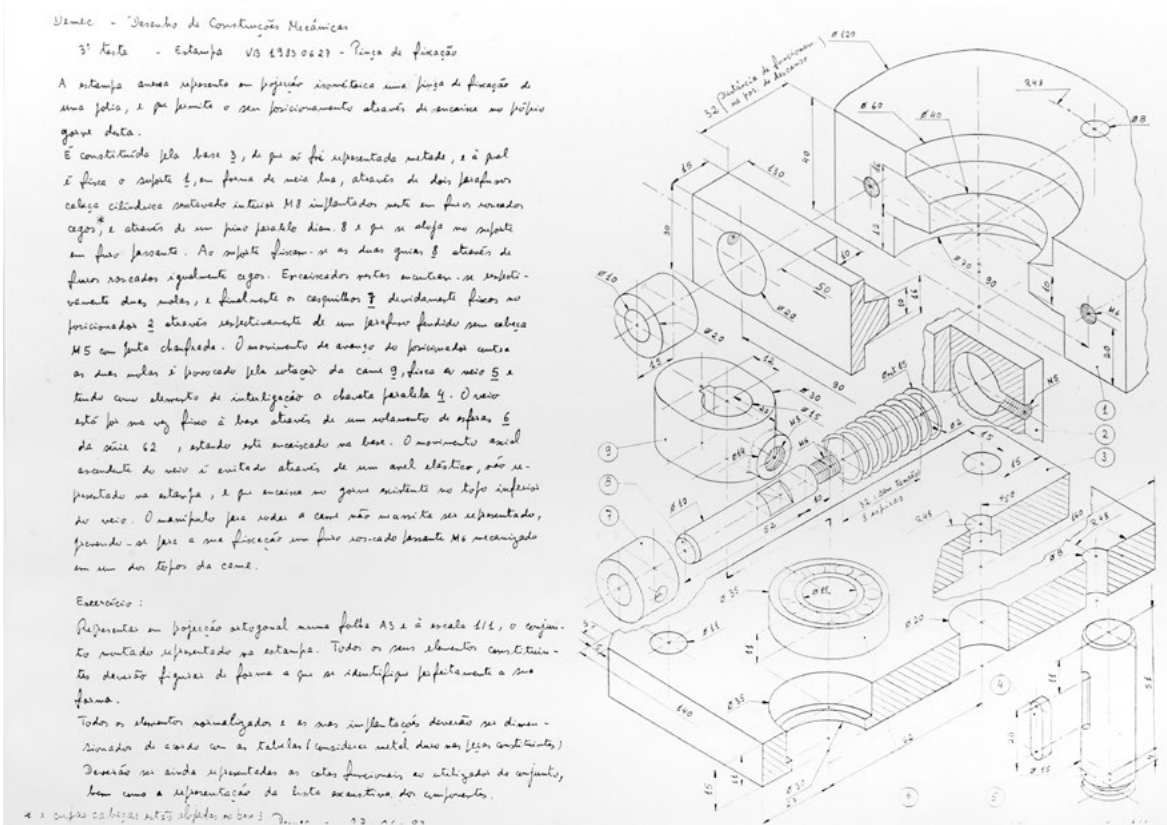 Demec - Desenho de Construções Mecânicas
3º teste - Estampa VB 19830627 - Pinça de fixação
A estampa anexa representa em projecção isométrica uma pinça de fixação de
uma polia, e que permite o seu posicionamento através de encaixe no próprio
gorne desta.
É constituída pela base 3, de que só foi representada metade, e à qual
é fixa o suporte 1, em forma de meia lua, através de dois parafusos
cabeça cilíndrica sextavado interior M8 implantados neste em furos roscados
cegos*, e através de um pino paralelo diam. 8 e que se aloja no suporte
em furo passante. Ao suporte fixam-se as duas guias 8 através de
furos roscados igualmente cegos. Encaixados nestas encontram-se respecti-
vamente duas molas, e finalmente os casquilhos 7 devidamente fixos no
posicionador 2 através respectivamente de um parafuso fendido sem cabeça
M5 com ponta chanfrada. O movimento de avanço do posicionador contra
as duas molas é provocado pela rotação da came 9, fixa ao veio 5 e
tendo como elemento de interligação a chaveta paralela 4. O veio
está por sua vez fixo à base através de um rolamento de esferas 6
da série 62, estando este encaixado na base. O movimento axial
ascendente do veio é evitado através de um anel elástico, não re-
presentado na estampa, e que encaixa no gorne existente no topo inferior
do veio. O manípulo para rodar a came não necessita ser representado,
prevendo-se para a sua fixação um furo roscado passante M6 mecanizado
em um dos topos da came.
Exercício:
Representar em projecção ortogonal numa folha A3 e à escala 1/1, o conjun-
to montado representado na estampa. Todos os seus elementos constituin-
tes deverão figurar de forma a que se identifique perfeitamente a sua
forma.
Todos os elementos normalizados e as suas implantações deverão ser dimen-
sionados de acordo com as tabelas (considerar metal duro nas peças constituintes)
Deverão ser ainda representadas as cotas funcionais ao utilizador do conjunto,
bem como a representação da lista exaustiva dos componentes.
* e cujas cabeças estão alojadas na base 3
32 (Distância de funcionam
na pos. de descanso)
ø 120
R48
ø 8
ø 60
ø 40
40
15
130
30
12
ø 70
90
10
M6
20
ø 10
ø 20
ø 20
50
10
16
15
12
90
ø 30
ø 15
M5
M6
ø 2
M5
1
2
3
9
8
7
ø 10
52
10
32, sem tensão
5 espiras
15
15
R48
160
R48
ø 8
ø 35
ø 15
ø 11
11
ø 20
ø 35
140
ø 30
62
15
11
4
20
11
51
ø 15
6
5